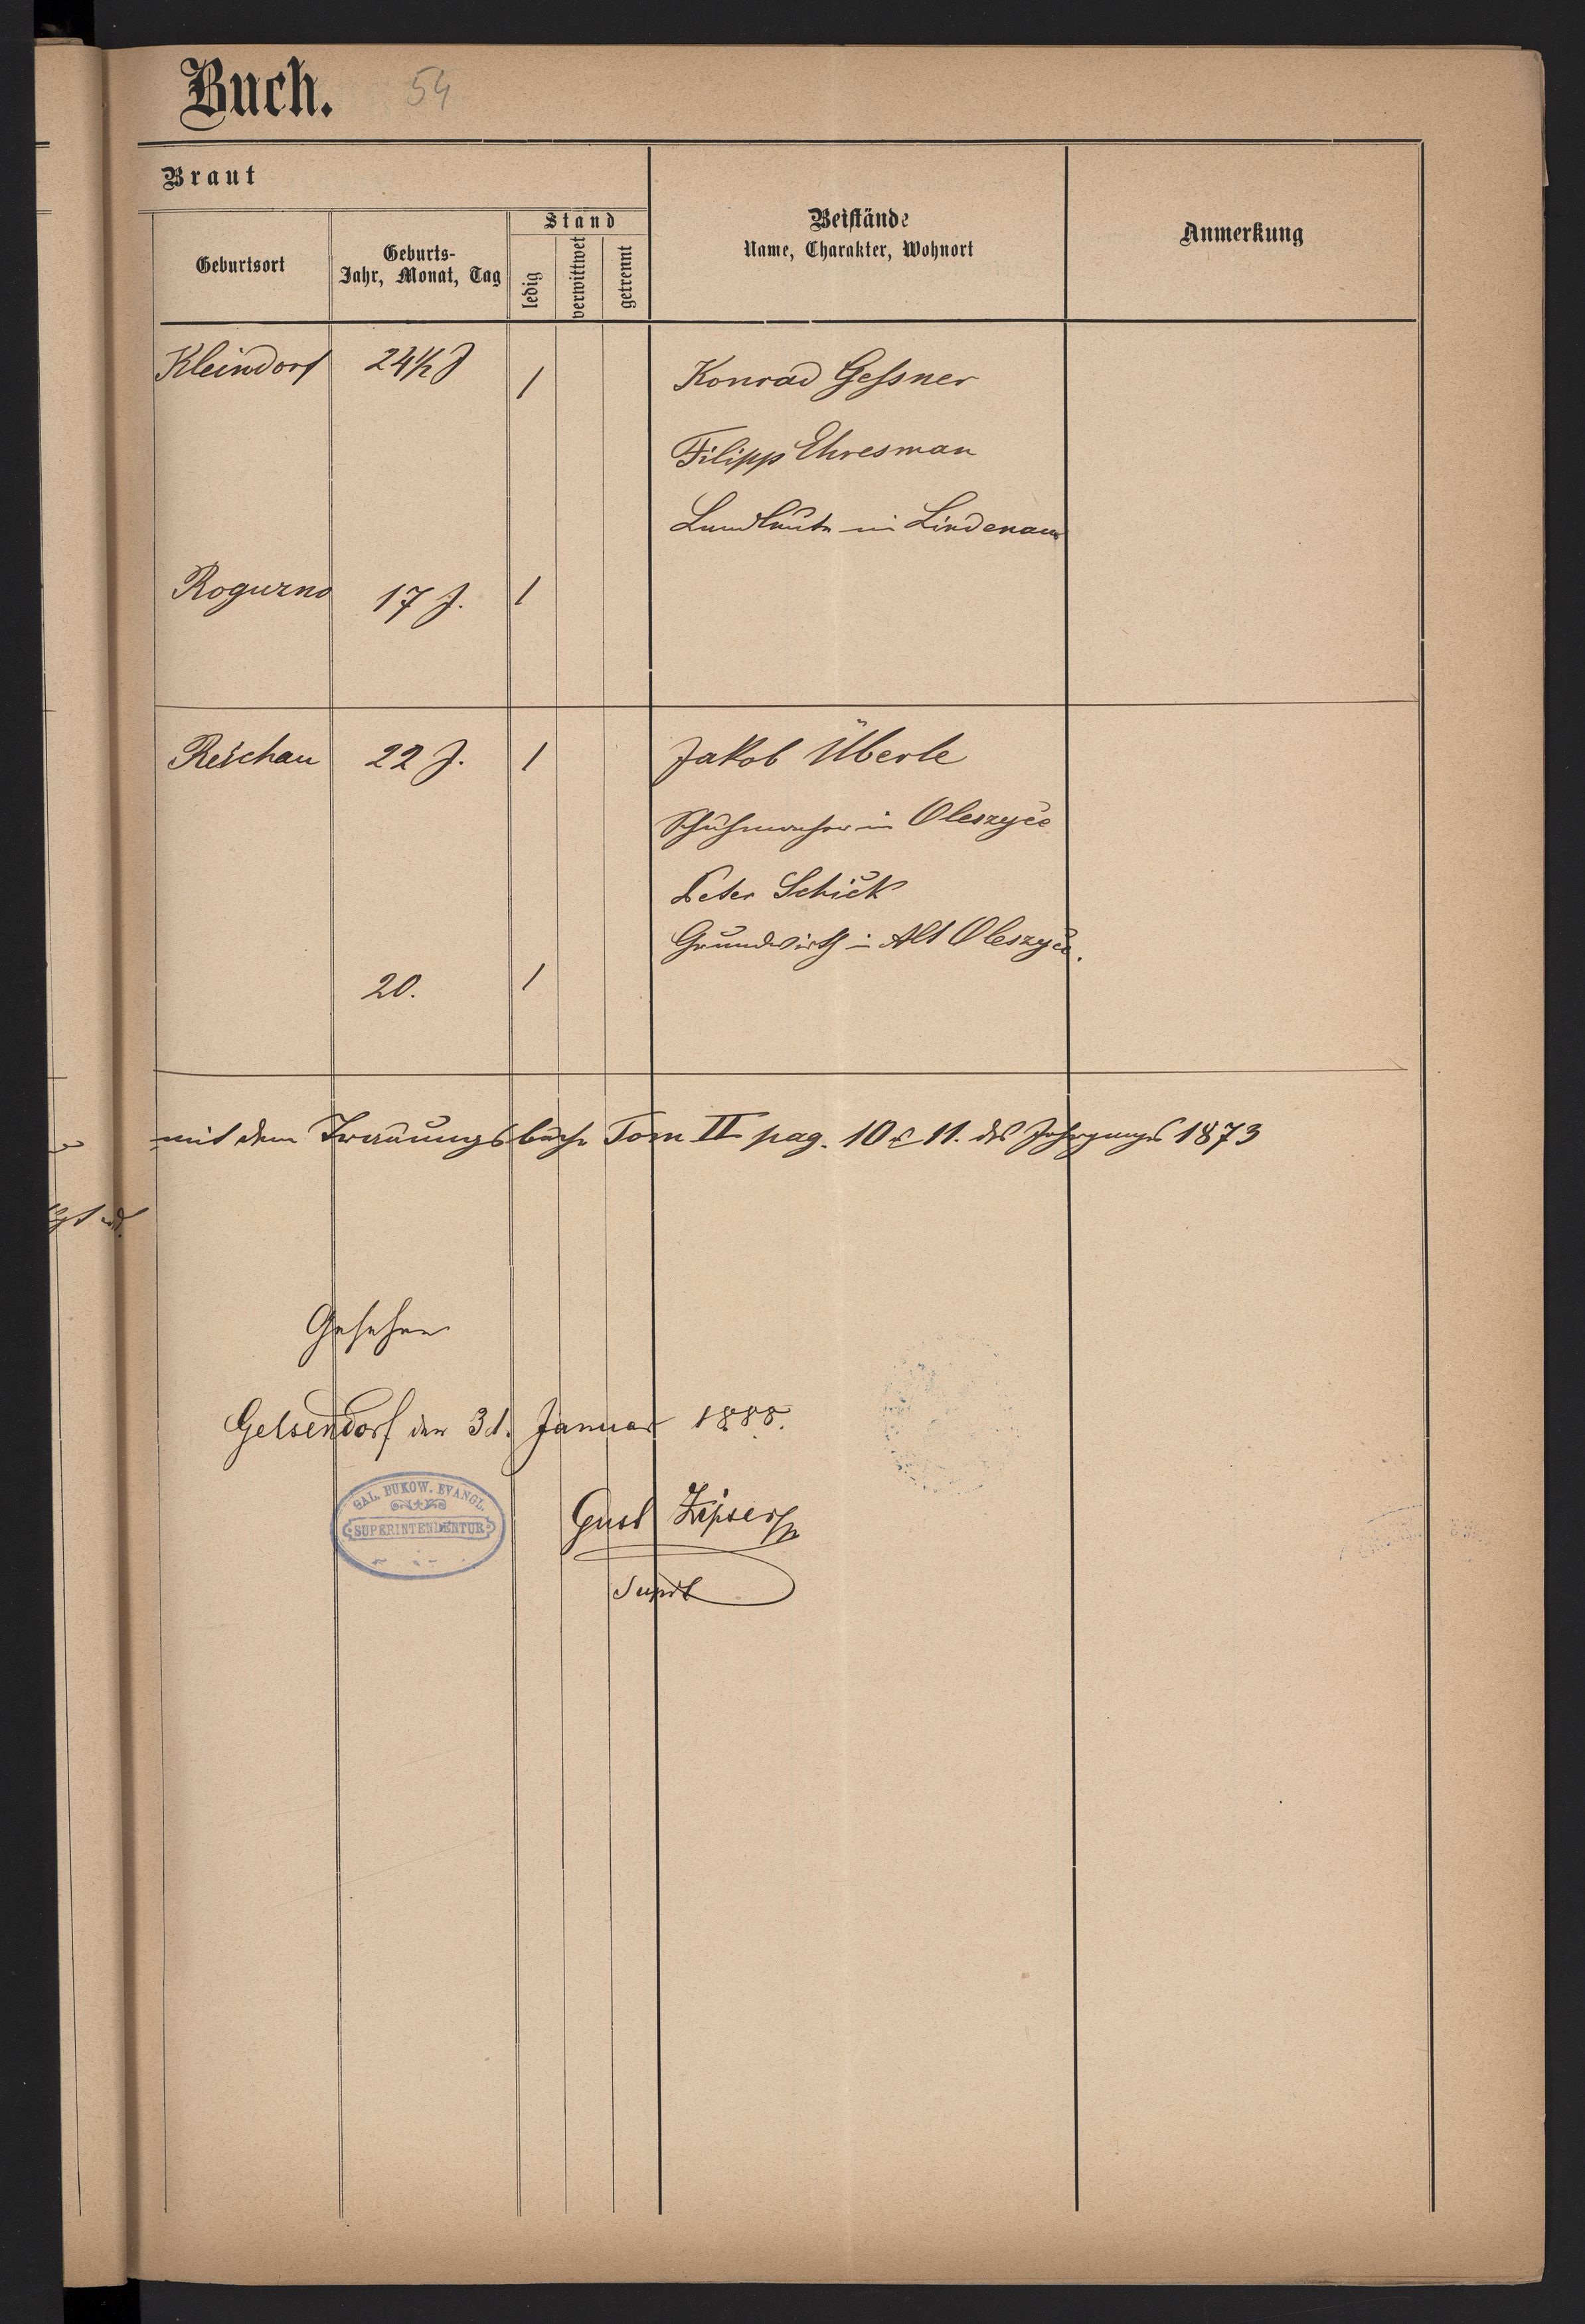 Buch. 54
Braut
Geburtsort
Geburts-
Jahr, Monat, Tag
Stand
ledig
verwittwet
getrennt
Beistände
Name, Charakter, Wohnort
Anmerkung
Kleindorf 24½ J / Konrad Gessner
Filipp Ehresman
Landleute in Lindenau
Rogurzno 17 J. /
Reichau 22 J. / Jakob Überle
Schuhmacher in Oleszyce
Peter Schick
Grundwirth in Alt Oleszyce.
20. /
mit dem Trauungsbuche Tom II pag. 10 & 11. des Jahrganges 1873
Gesehen
Gelsendorf den 31. Januar 1888.
GAL. BUKOW. EVANGL.
SUPERINTENDENTUR
Gust Zipser
Supdt